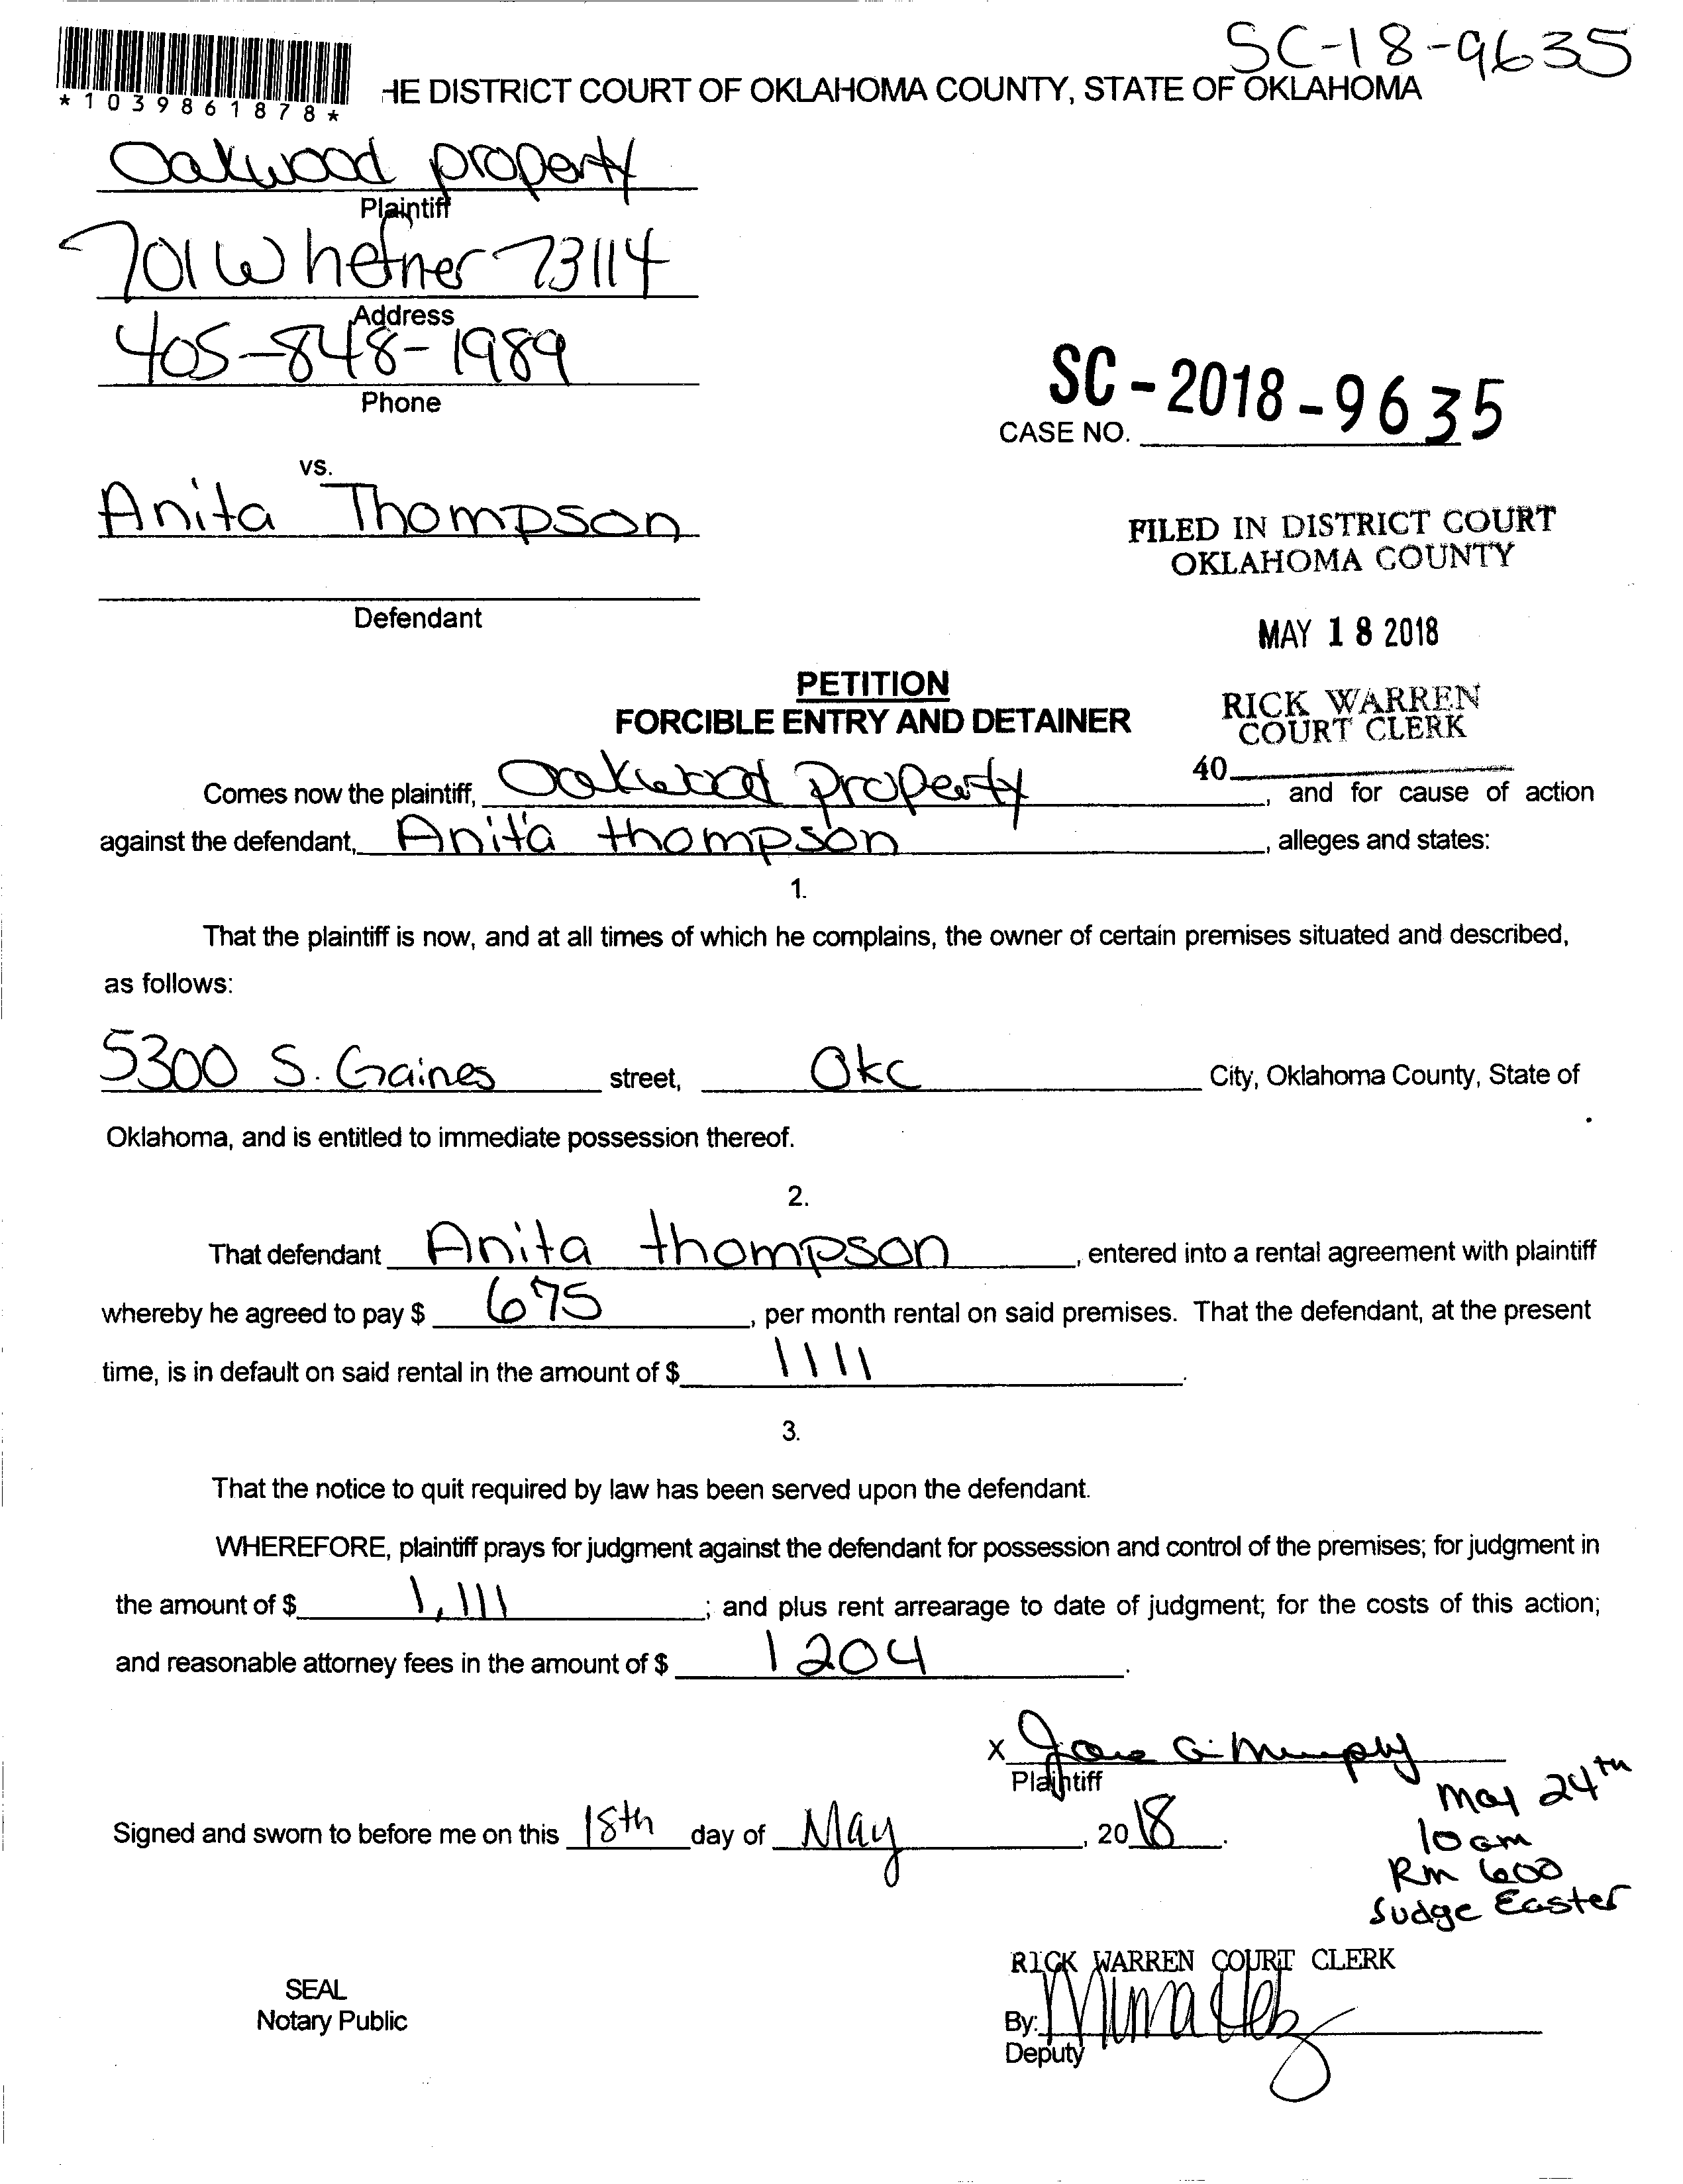 SC-18-9635
*1039861878*
HE DISTRICT COURT OF OKLAHOMA COUNTY, STATE OF OKLAHOMA
Oakwood property
Plaintiff
701 W hefner 73114
Address
405-848-1989
Phone
SC-2018-9635
CASE NO.
vs.
Anita Thompson
FILED IN DISTRICT COURT
OKLAHOMA COUNTY
Defendant
MAY 18 2018
PETITION
FORCIBLE ENTRY AND DETAINER
RICK WARREN
COURT CLERK
40
Comes now the plaintiff, Oakwood property, and for cause of action
against the defendant, Anita thompson, alleges and states:
1.
That the plaintiff is now, and at all times of which he complains, the owner of certain premises situated and described,
as follows:
5300 S. Gaines street, Okc City, Oklahoma County, State of
Oklahoma, and is entitled to immediate possession thereof.
2.
That defendant Anita thompson, entered into a rental agreement with plaintiff
whereby he agreed to pay $ 675, per month rental on said premises. That the defendant, at the present
time, is in default on said rental in the amount of $ 1111.
3.
That the notice to quit required by law has been served upon the defendant.
WHEREFORE, plaintiff prays for judgment against the defendant for possession and control of the premises; for judgment in
the amount of $ 1,111; and plus rent arrearage to date of judgment; for the costs of this action;
and reasonable attorney fees in the amount of $ 1204.
x
Plaintiff
May 24th
Signed and sworn to before me on this 18th day of May, 2018.
10am
Rm 600
Judge Easter
RICK WARREN COURT CLERK
SEAL
Notary Public
By:
Deputy